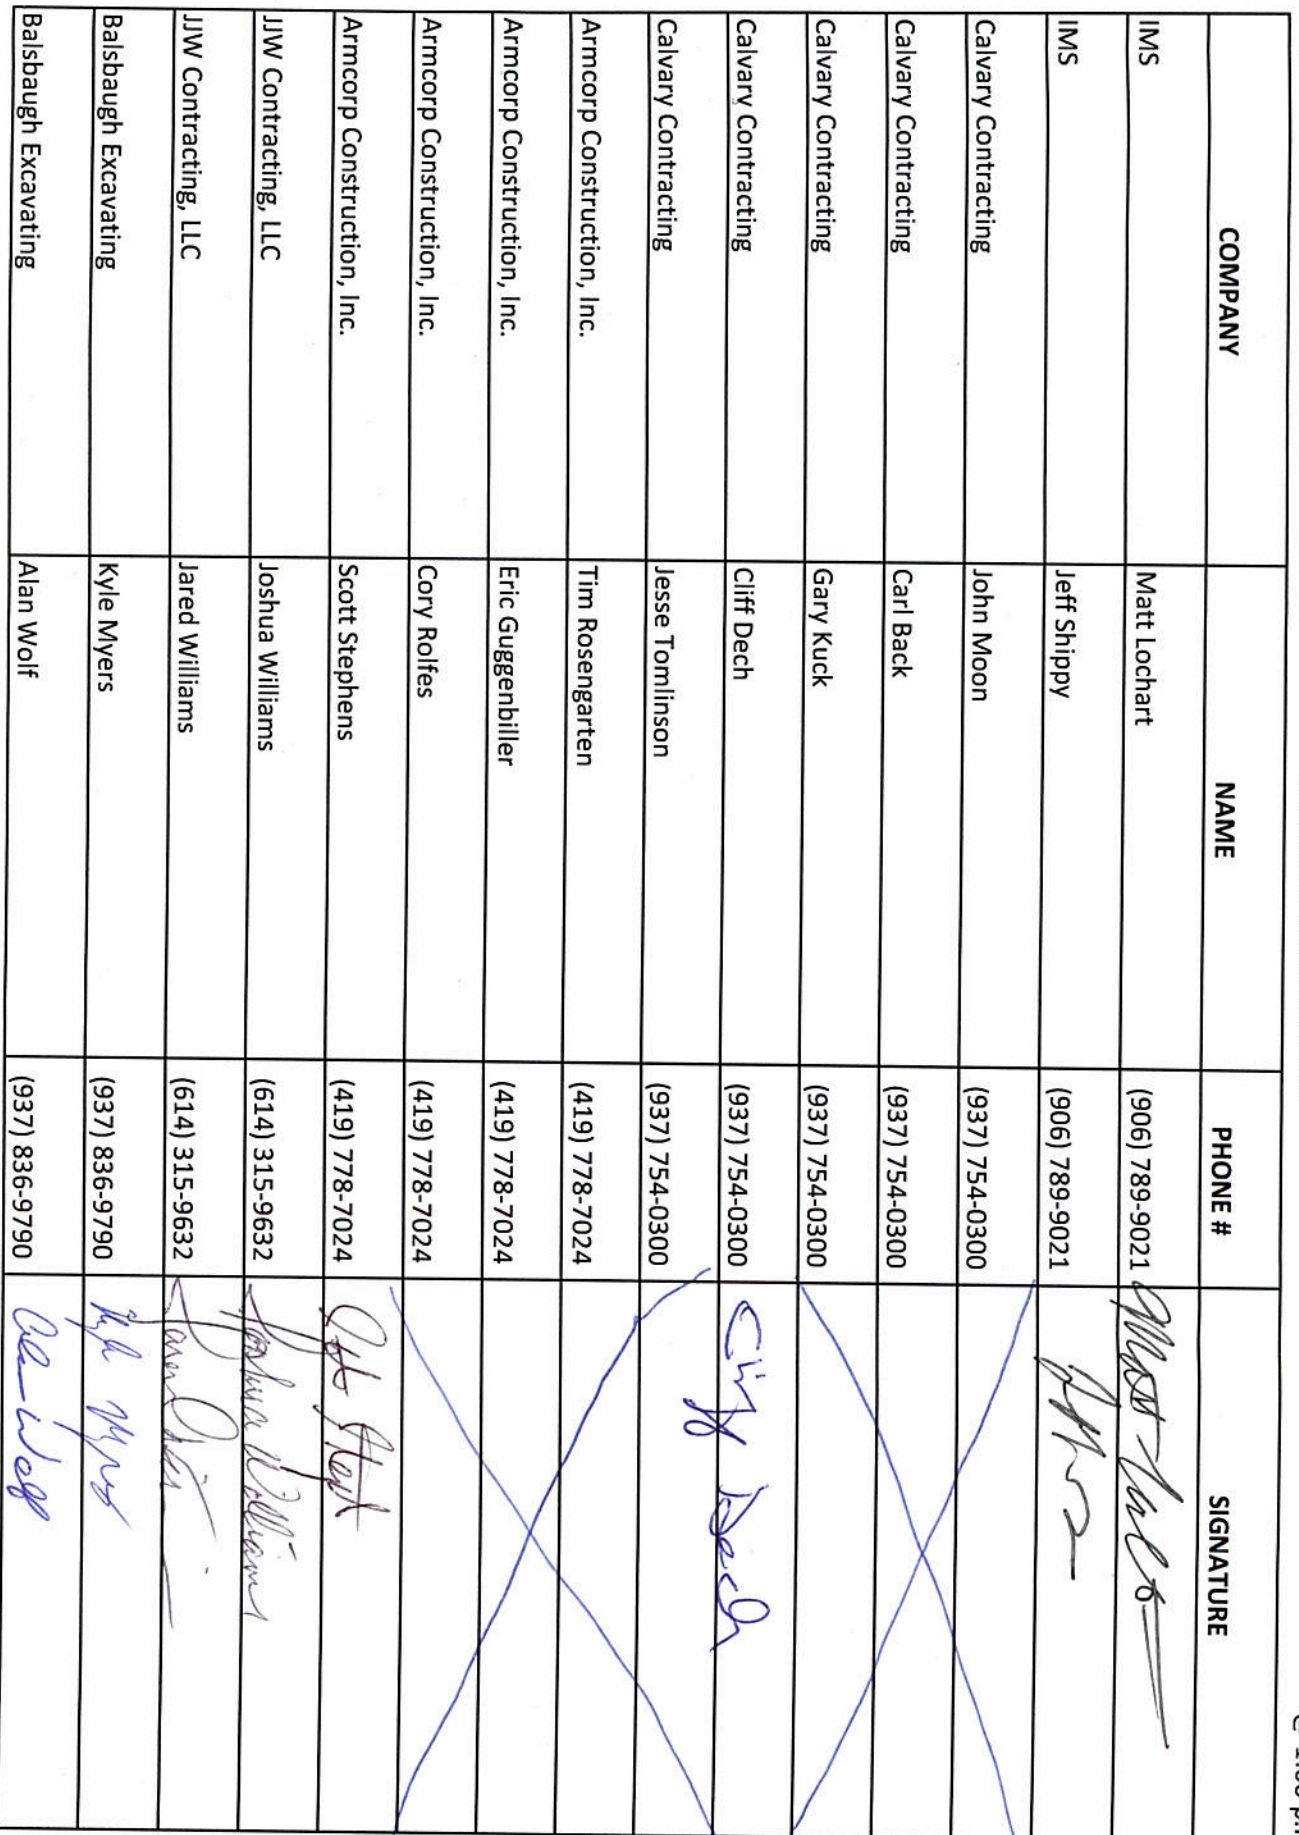 @ 1:00 p
COMPANY NAME PHONE # SIGNATURE
IMS Matt Lochart (906) 789-9021
IMS Jeff Shippy (906) 789-9021
Calvary Contracting John Moon (937) 754-0300
Calvary Contracting Carl Back (937) 754-0300
Calvary Contracting Gary Kuck (937) 754-0300
Calvary Contracting Cliff Dech (937) 754-0300 Cliff Dech
Calvary Contracting Jesse Tomlinson (937) 754-0300
Armcorp Construction, Inc. Tim Rosengarten (419) 778-7024
Armcorp Construction, Inc. Eric Guggenbiller (419) 778-7024
Armcorp Construction, Inc. Cory Rolfes (419) 778-7024
Armcorp Construction, Inc. Scott Stephens (419) 778-7024
JJW Contracting, LLC Joshua Williams (614) 315-9632 Joshua Williams
JJW Contracting, LLC Jared Williams (614) 315-9632
Balsbaugh Excavating Kyle Myers (937) 836-9790 Kyle Myers
Balsbaugh Excavating Alan Wolf (937) 836-9790 Alan Wolf